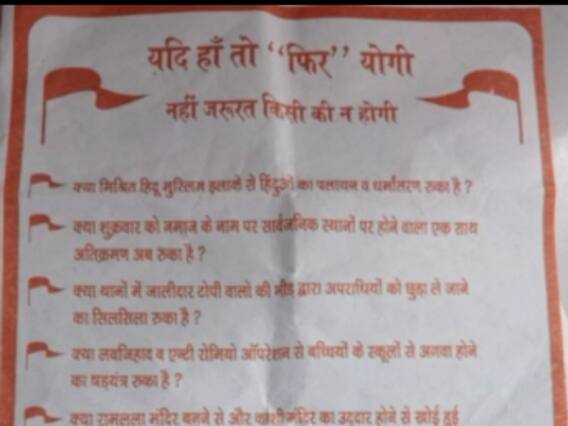 यदि हाँ तो “फिर” योगी
नहीं जरूरत किसी की न होगी
क्या मिश्रित हिंदू मुस्लिम इलाके से हिंदुओं का पलायन व धर्मांतरण रुका है ?
क्या शुक्रवार को नमाज के नाम पर सार्वजनिक स्थानों पर होने वाला एक साथ
अतिक्रमण अब रुका है ?
क्या थानों में जालीदार टोपी वालो की भीड़ द्वारा अपराधियों को छुड़ा ले जाने
का सिलसिला रुका है ?
क्या लवजिहाद व एन्टी रोमियो ऑपरेशन से बच्चियों के स्कूलों से अगवा होने
का षड्यंत्र रुका है ?
क्या रामलला मंदिर बनने से और काशी मंदिर का उद्दार होने से खोई हुई